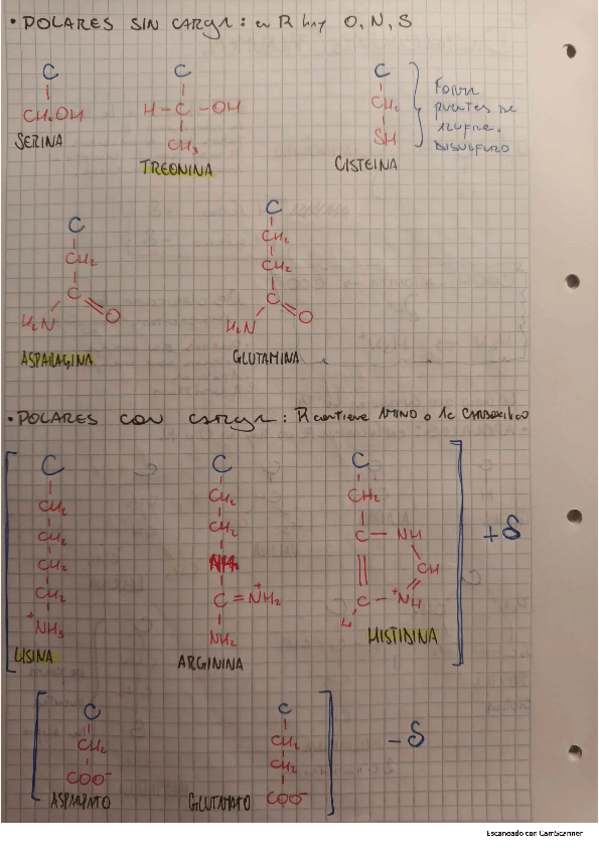 • POLARES SIN CARGA: en R hay O, N, S
C
CH₂OH
SERINA
C
H – C – OH
CH₃
TREONINA
C
CH₂
SH
CISTEINA
Forma
puentes de
azufre.
DISULFURO
C
CH₂
C
H₂N
O
ASPARAGINA
C
CH₂
CH₂
C
H₂N
O
GLUTAMINA
• POLARES CON CARGA: R contiene AMINO o Ac CARBOXILICO
C
CH₂
CH₂
CH₂
CH₂
⁺NH₃
LISINA
C
CH₂
CH₂
NH₂
C = ⁺NH₂
NH₂
ARGININA
C
CH₂
C – NH
CH
C – ⁺NH
H
HISTIDINA
+ δ
C
CH₂
COO⁻
ASPARTATO
C
CH₂
CH₂
COO⁻
GLUTAMATO
– δ
Escaneado con CamScanner